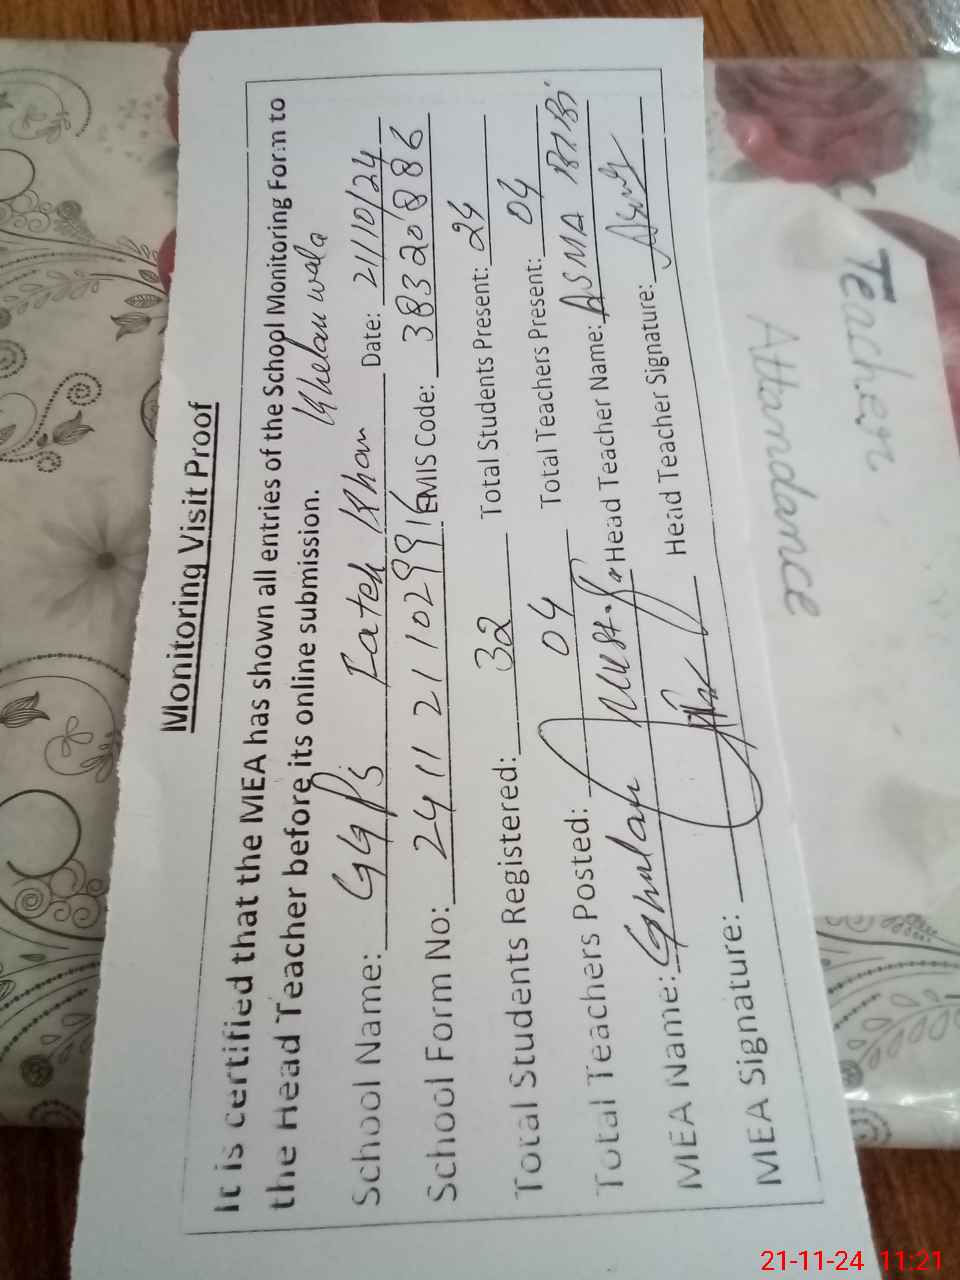 Monitoring Visit Proof
It is certified that the MEA has shown all entries of the School Monitoring Form to
the Head Teacher before its online submission.
Khelan wala
School Name: GGPS Fateh Khan Date: 21/10/24
School Form No: 2411211029916 EMIS Code: 38320886
Total Students Registered: 32 Total Students Present: 24
Total Teachers Posted: 04 Total Teachers Present: 04
MEA Name: Ghulam Mustafa Head Teacher Name: ASMA BIBI
MEA Signature: Head Teacher Signature:
Teacher
Attendance
21-11-24 11:21